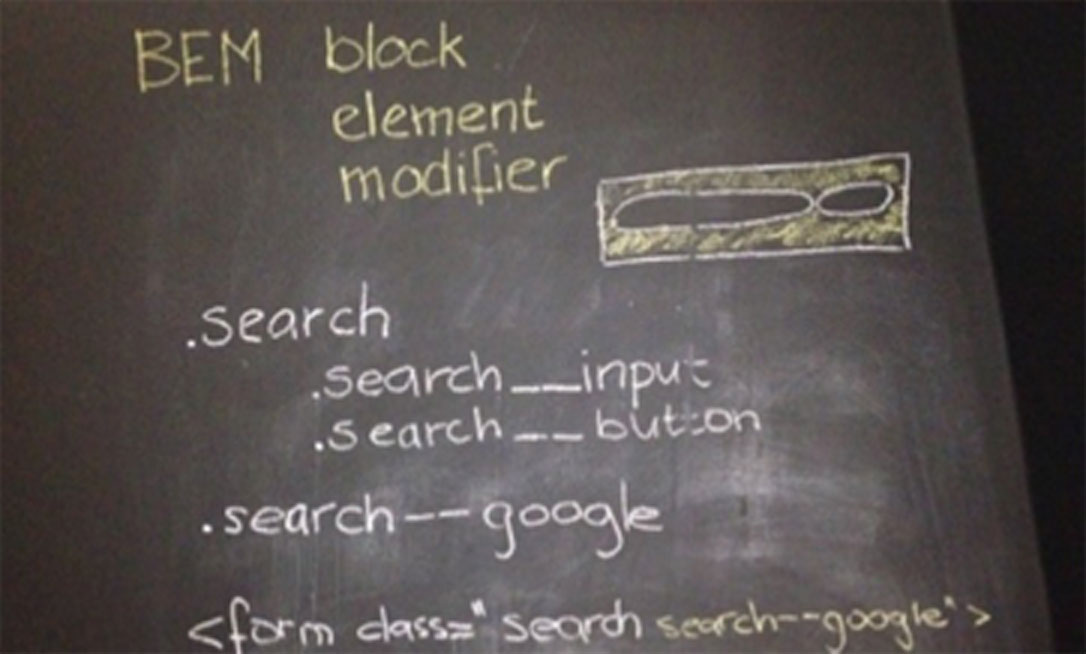 BEM block
element
modifier
.search
.search__input
.search__button
.search--google
<form class="search search--google">